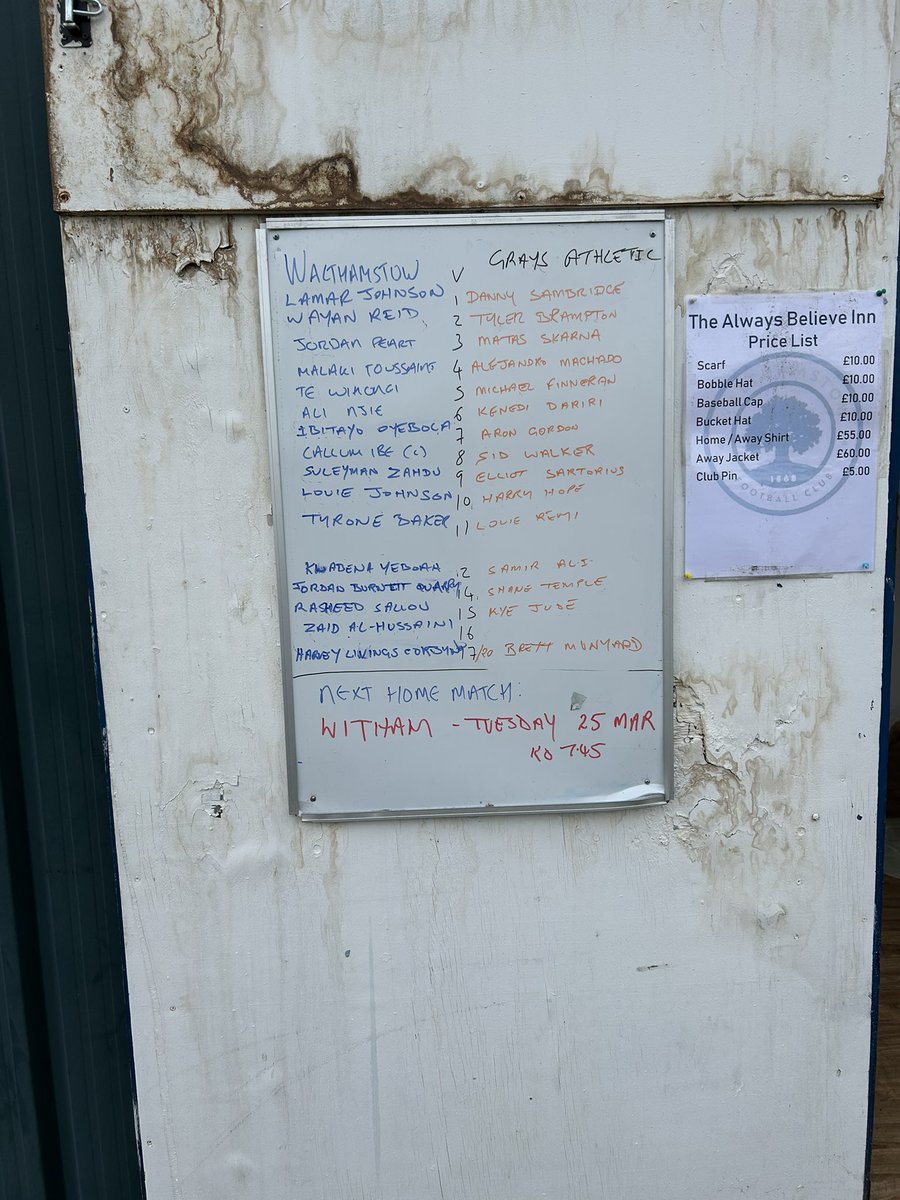 WALTHAMSTOW V GRAYS ATHLETIC
LAMAR JOHNSON 1 DANNY SAMBRIDGE
WAYAN REID 2 TYLER BRAMPTON
JORDAN PEART 3 MATAS SKARNA
MALAKI TOUSSAINT 4 ALEJANDRO MACHADO
TE 5 MICHAEL FINNERAN
ALI NJIE 6 KENEDI DARIRI
IBITAYO OYEBOLA 7 ARON GORDON
CALLUM IBE (C) 8 SID WALKER
SULEYMAN ZAHDU 9 ELLIOT SARTORIUS
LOUIE JOHNSON 10 HARRY HOPE
TYRONE BAKER 11 LOUIE REMI
KWADENA YEBOAH 12 SAMIR ALI
JORDAN BURNETT QUARRY 14 SHANE TEMPLE
RASHEED SALLON 15 KYE JUDE
ZAID AL-HUSSAINI 16
HARVEY LIKINGS 17/20 BRETT MUNYARD
NEXT HOME MATCH:
WITHAM - TUESDAY 25 MAR
KO 7.45
The Always Believe Inn
Price List
Scarf £10.00
Bobble Hat £10.00
Baseball Cap £10.00
Bucket Hat £10.00
Home / Away Shirt £55.00
Away Jacket £60.00
Club Pin £5.00
1868
FOOTBALL CLUB